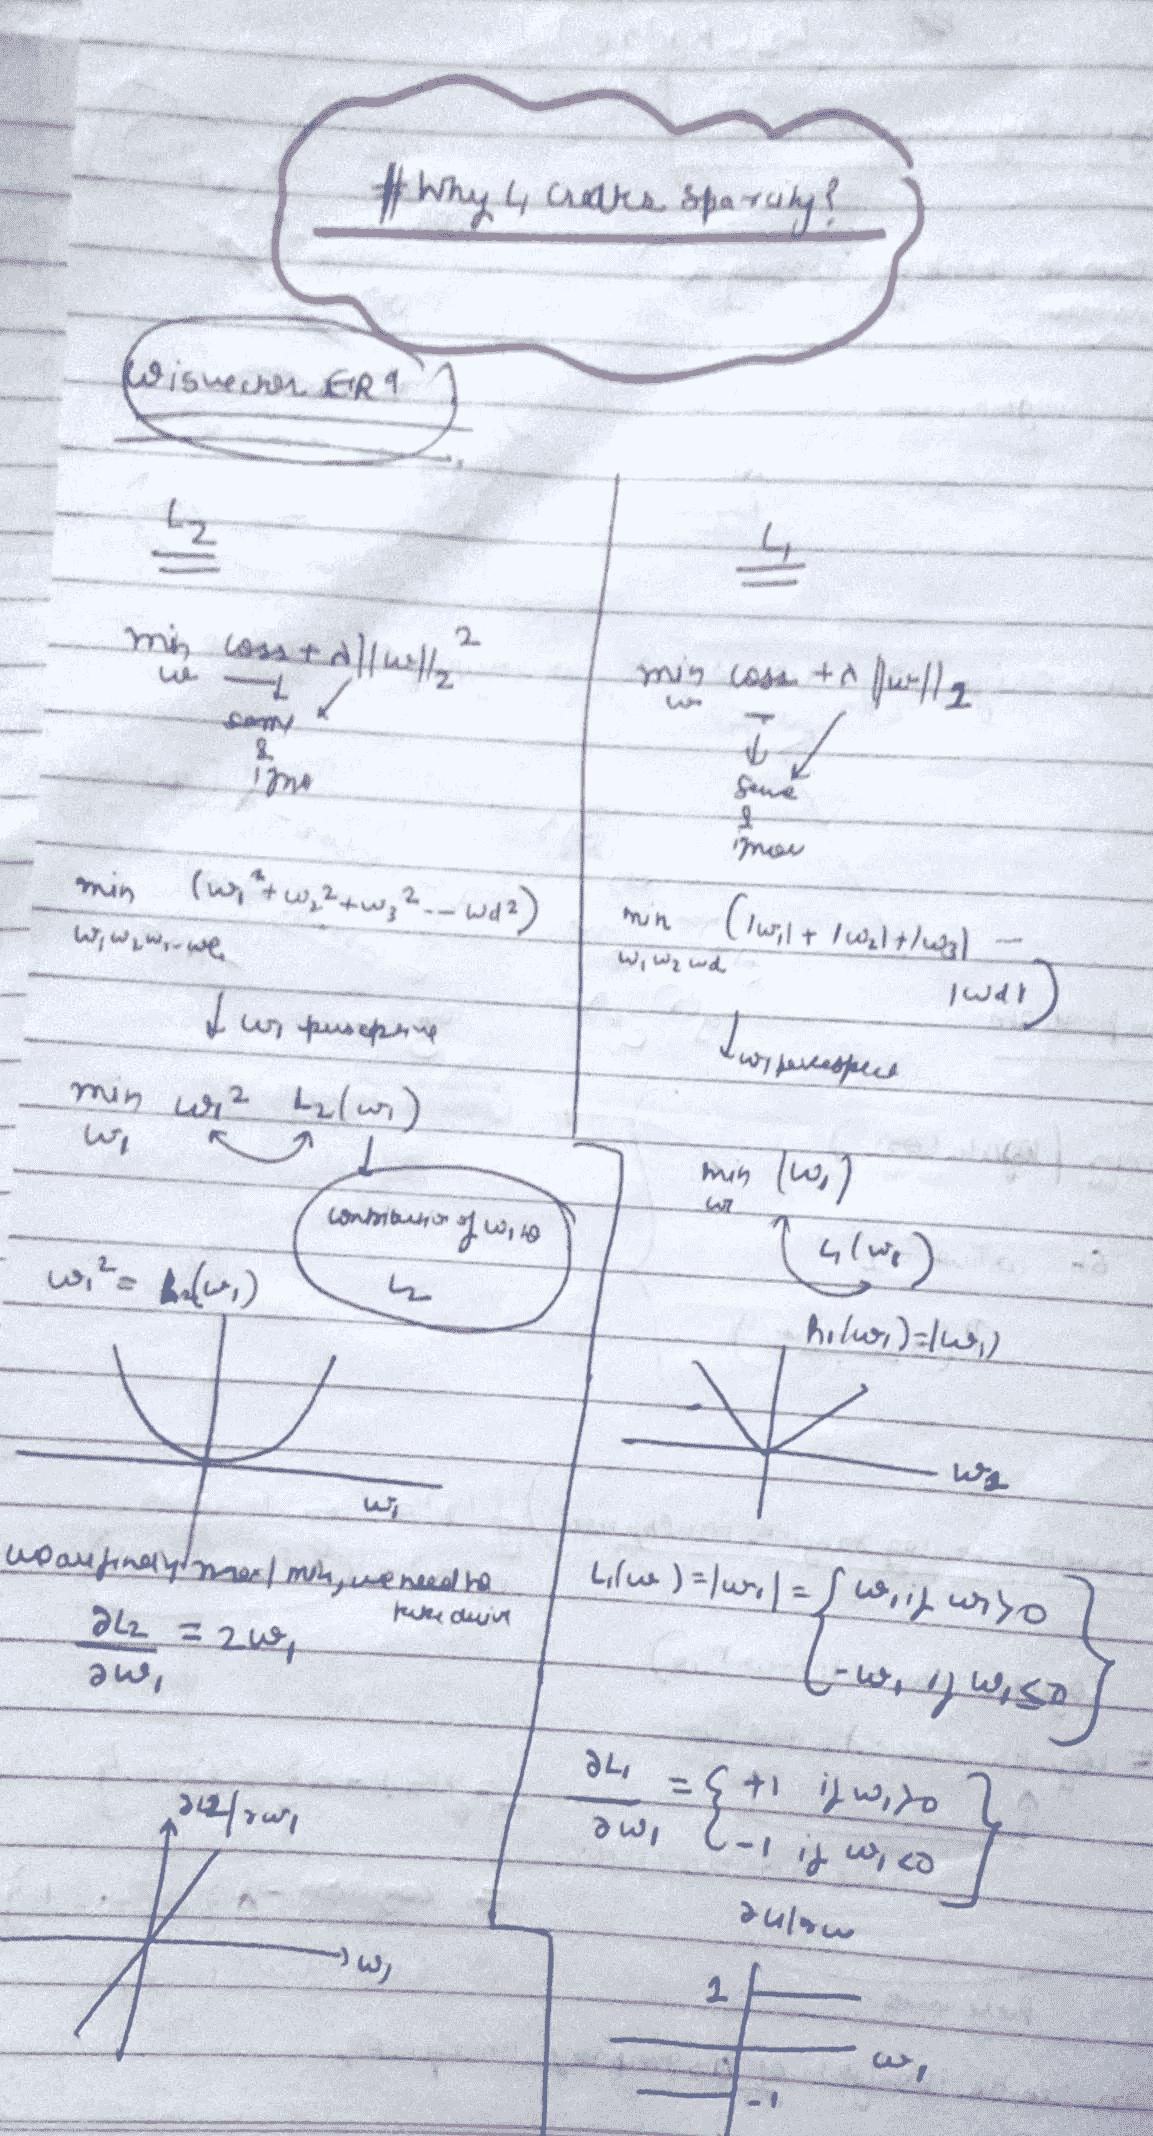 # Why L1 creates sparsity?
W is vector ∈ R d
L2
min loss + λ||w||2^2
w
same
&
min (w1^2 + w2^2 + w3^2 -- wd^2)
↓ w1 perspective
min w1^2 L2(w1)
w1
contribution of w1 to
L2
w1^2 = L2(w1)
w1
max/min, we need to
∂L2/∂w1 = 2w1
∂L2/∂w1
w1
L1
min loss + λ ||w||1
w
same
&
min (|w1| + |w2| + |w3| --
w1 w2 wd
|wd|)
↓ w1 perespect
min |w1|
L1(w1)
L1(w1) = |w1|
L1(w1) = |w1| = { w1 if w1 > 0
-w1 if w1 ≤ 0 }
∂L1/∂w1 = { +1 if w1 > 0
-1 if w1 < 0 }
∂L1/∂w
1
w1
-1